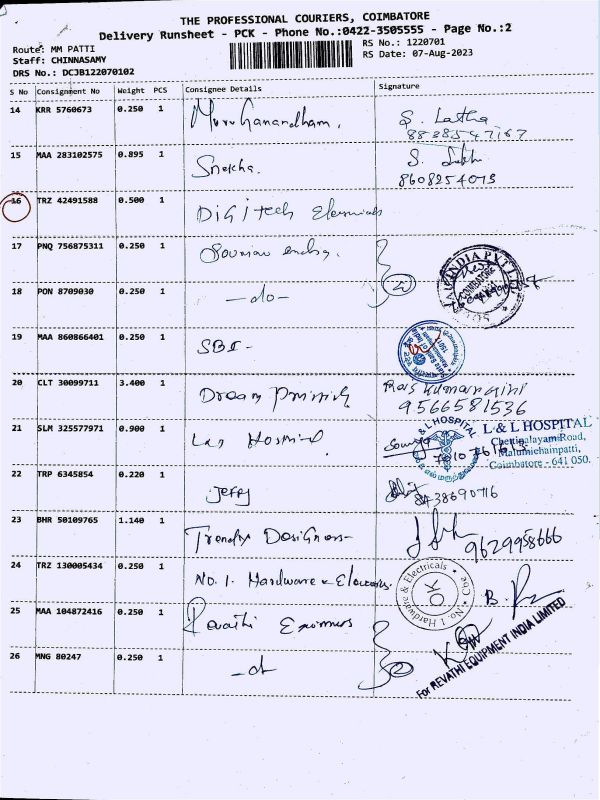 THE PROFESSIONAL COURIERS, COIMBATORE
Delivery Runsheet - PCK - Phone No.:0422-3505555 - Page No.:2
Route: MM PATTI
RS No.: 1220701
Staff: CHINNASAMY
RS Date: 07-Aug-2023
DRS No.: DCJB122070102
S No Consignment No Weight PCS Consignee Details Signature
14 KRR 5760673 0.250 1 S. Latha
15 MAA 283102575 0.895 1 Sneha. S.
8608254073
16 TRZ 42491588 0.500 1 DIGITech Electricals
17 PNQ 756875311 0.250 1
18 PON 8709030 0.250 1 -do-
19 MAA 860866401 0.250 1 SBI-
20 CLT 30099711 3.400 1 Dream
9566581536
21 SLM 325577971 0.900 1
L & L HOSPITAL
Chettipalayam Road,
Malumichampatti,
Coimbatore - 641 050.
22 TRP 6345854 0.220 1 Jeffy
23 BHR 50109765 1.140 1 Trendy Designers
9629958666
24 TRZ 130005434 0.250 1 No. 1. Hardware & Electricals.
No. 1 Hardware & Electricals • Cbe •
OK
25 MAA 104872416 0.250 1 Revathi
For REVATHI EQUIPMENT INDIA LIMITED
26 MNG 80247 0.250 1 -do 2